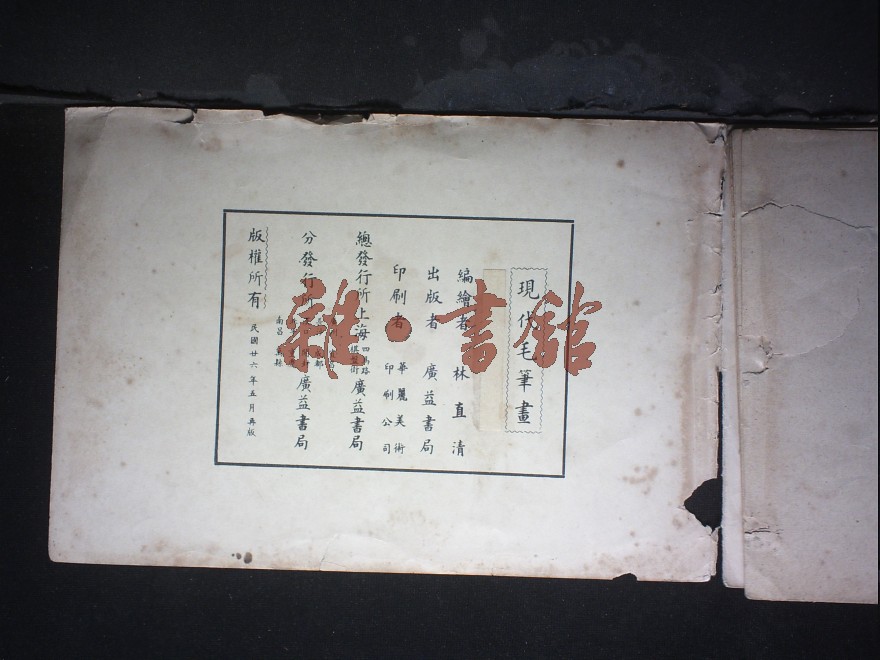 現代毛筆畫
編繪者 林直清
出版者 廣益書局
印刷者 華麗美術印刷公司
總發行所上海四馬路棋盤街廣益書局
分發行所
南昌 廣益書局
版權所有
民國廿六年五月再版
雜·書館